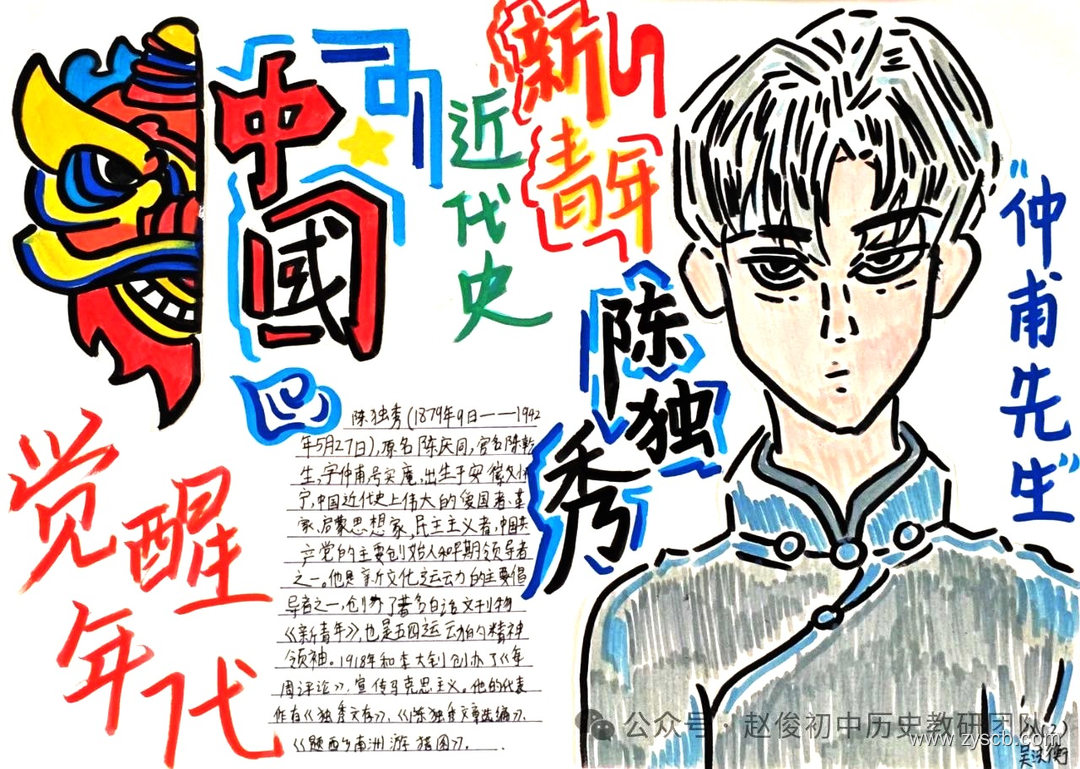 中國
近代史
新青年
陈独秀
"仲甫先生"
觉醒年代
陈独秀(1879年9日——1942
年5月27日),原名陈庆同,官名陈乾
生,字仲甫号实庵,出生于安徽
宁,中国近代史上伟大的爱国者、革
家、启蒙思想家,民主主义者,中国共
产党的主要创始人和早期领导者
之一。他是新文化运动的主要倡
导者之一,创办了著名白话文刊物
《新青年》,也是五四运动的精神
领袖。1918年和李大钊创办了《每
周评论》,宣传马克思主义。他的代表
作有《独秀文存》、《陈独秀文章选编》、
《题西乡南洲游猎图》。
公众号·赵俊初中历史教研团队
www.zyscb.com